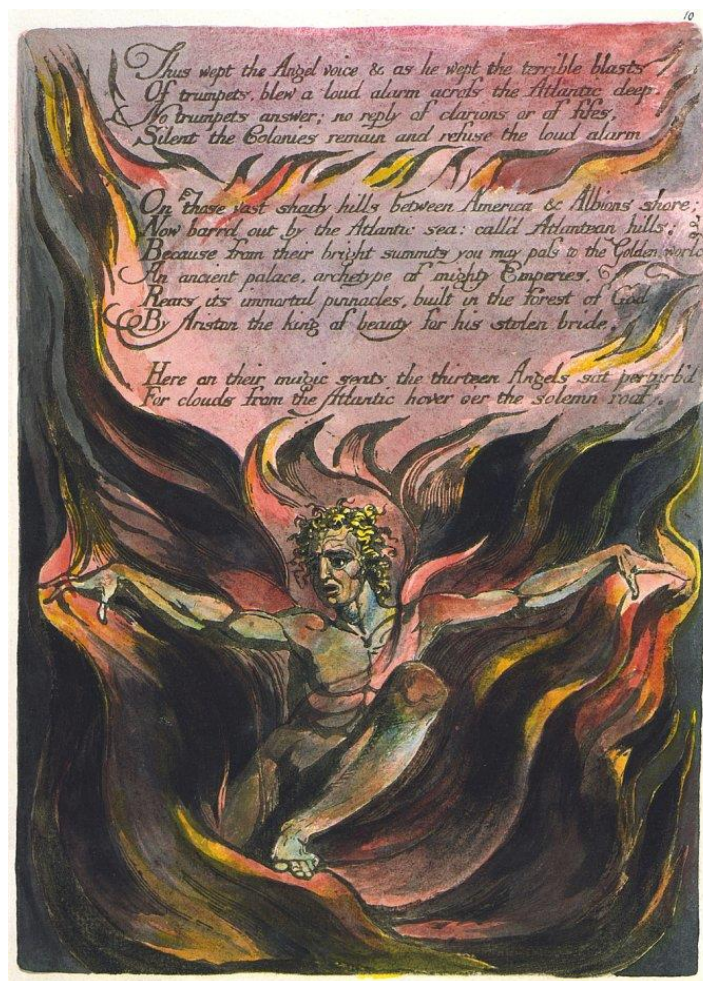 10
Thus wept the Angel voice & as he wept the terrible blasts
Of trumpets, blew a loud alarm across the Atlantic deep.
No trumpets answer; no reply of clarions or of fifes,
Silent the Colonies remain and refuse the loud alarm
On those vast shady hills between America & Albions shore;
Now barr'd out by the Atlantic sea: call'd Atlantean hills:
Because from their bright summits you may pass to the Golden world
An ancient palace, archetype of mighty Emperies,
Rears its immortal pinnacles, built in the forest of God
By Ariston the king of beauty for his stolen bride,
Here on their magic seats the thirteen Angels sat perturb'd
For clouds from the Atlantic hover oer the solemn roof.